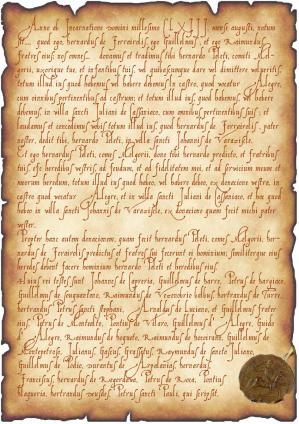 Anno de Incarnatione Domini millesimo CLXIII mense augusti, notum
sit... quod ego, bernardus de Ferrairolis, ego Guillelmus, et ego Raimundus,
fratres eius, nos omnes... donamus et tradimus tibi bernardo Peleti, comiti Mel-
gorii, uxorique tue, et infantibus tuis, vel quibuscumque dare vel dimittere volueritis,
totum illud ius quod habemus vel habere debemus in castro, quod vocatur Alegre,
cum omnibus pertinentibus ad castrum; et totum illud ius, quod habemus vel habere
debemus, in villa sancti Juliani de Cassanico, cum omnibus pertinentibus suis; et
laudamus et concedimus vobis totum illud ius, quod bernardus de Ferrairolis, pater
noster, dedit tibi, bernardo Peleti, in villa sancti Johannis de
Et ego bernardus Peleti, comes Melgorii, dono tibi bernardo predicto, et fratribus
tuis, et heredibus vestris, ad feudum, et ad fidelitatem mei, et ad servicium meum et
meorum heredum, totum illud ius quod habeo, vel habere debeo, ex donatione vestra, in
castro quod vocatur Alegre, et in villa sancti Juliani de Cassanico, et hoc quod
habeo in villa sancti Johannis de ex donatione quam fecit michi pater
vester.
Propter hanc autem donacionem, quam facit bernardus Peleti, comes Melgorii, ber-
nardus de Ferairolis predictus et fratres sui fecerunt ei hominium; similiterque eius
heredes debent facere hominium bernardo Peleti et heredibus eius.
Huius rei testes sunt Johannes de bares, Petrus de bariaco,
Guillelmus de Raimundus de bertrandus de
bertrandus sancti Stephani, Arnaldus de Luciano, Guillelmus frater
eius, Petrus de Montedesto, Pontius de Vilaro, Guillelmus de Alegre, Guido
de Alegre, Raimundus de baguto, Raimundus de Guillelmus de
Montepetroso, Julianus, Raymundus de sancto Juliano,
Guillelmus de Podio, de bernardus de
Franciscus, bernardus de Petrus de Roca, Pontius
bertrandus Petrus sancti Pauli, qui scripsit.